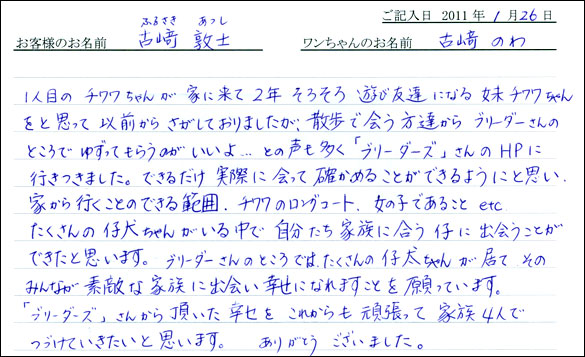 ご記入日 2011 年 1 月 26 日
ふるさき あつし
お客様のお名前 古﨑 敦士 ワンちゃんのお名前 古﨑 のわ
1人目の チワワちゃんが 家に来て 2年 そろそろ 遊び友達 になる 妹 チワワちゃん
をと思って 以前から さがしておりましたが、散歩で会う方達から ブリーダーさんの
ところで ゆずってもらうのがいいよ… との声も多く「ブリーダーズ」さんの HPに
行きつきました。できるだけ 実際に 会って 確かめることができるようにと思い、
家から行くことのできる範囲、チワワのロングコート、女の子であること etc
たくさんの 仔犬ちゃんがいる中で 自分たち 家族に合う 仔に 出会うことが
できたと思います。ブリーダーさんのところでは、たくさんの 仔犬ちゃんが 居て その
みんなが 素敵な 家族に出会い 幸せになれますことを 願っています。
「ブリーダーズ」さんから 頂いた 幸せを これからも 頑張って 家族4人で
つづけていきたいと思います。 ありがとう ございました。